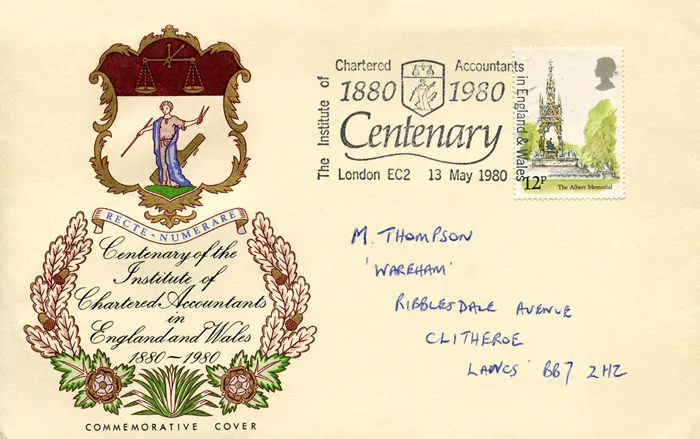 RECTE-NUMERARE
Centenary of the
Institute of
Chartered Accountants
in
England and Wales
1880~1980
COMMEMORATIVE COVER
The Institute of
Chartered Accountants
in England & Wales
1880 1980
Centenary
London EC2 13 May 1980
12P
The Albert Memorial
M. THOMPSON
'WAREHAM'
RIBBLESDALE AVENUE
CLITHEROE
LANCS BB7 2HZ